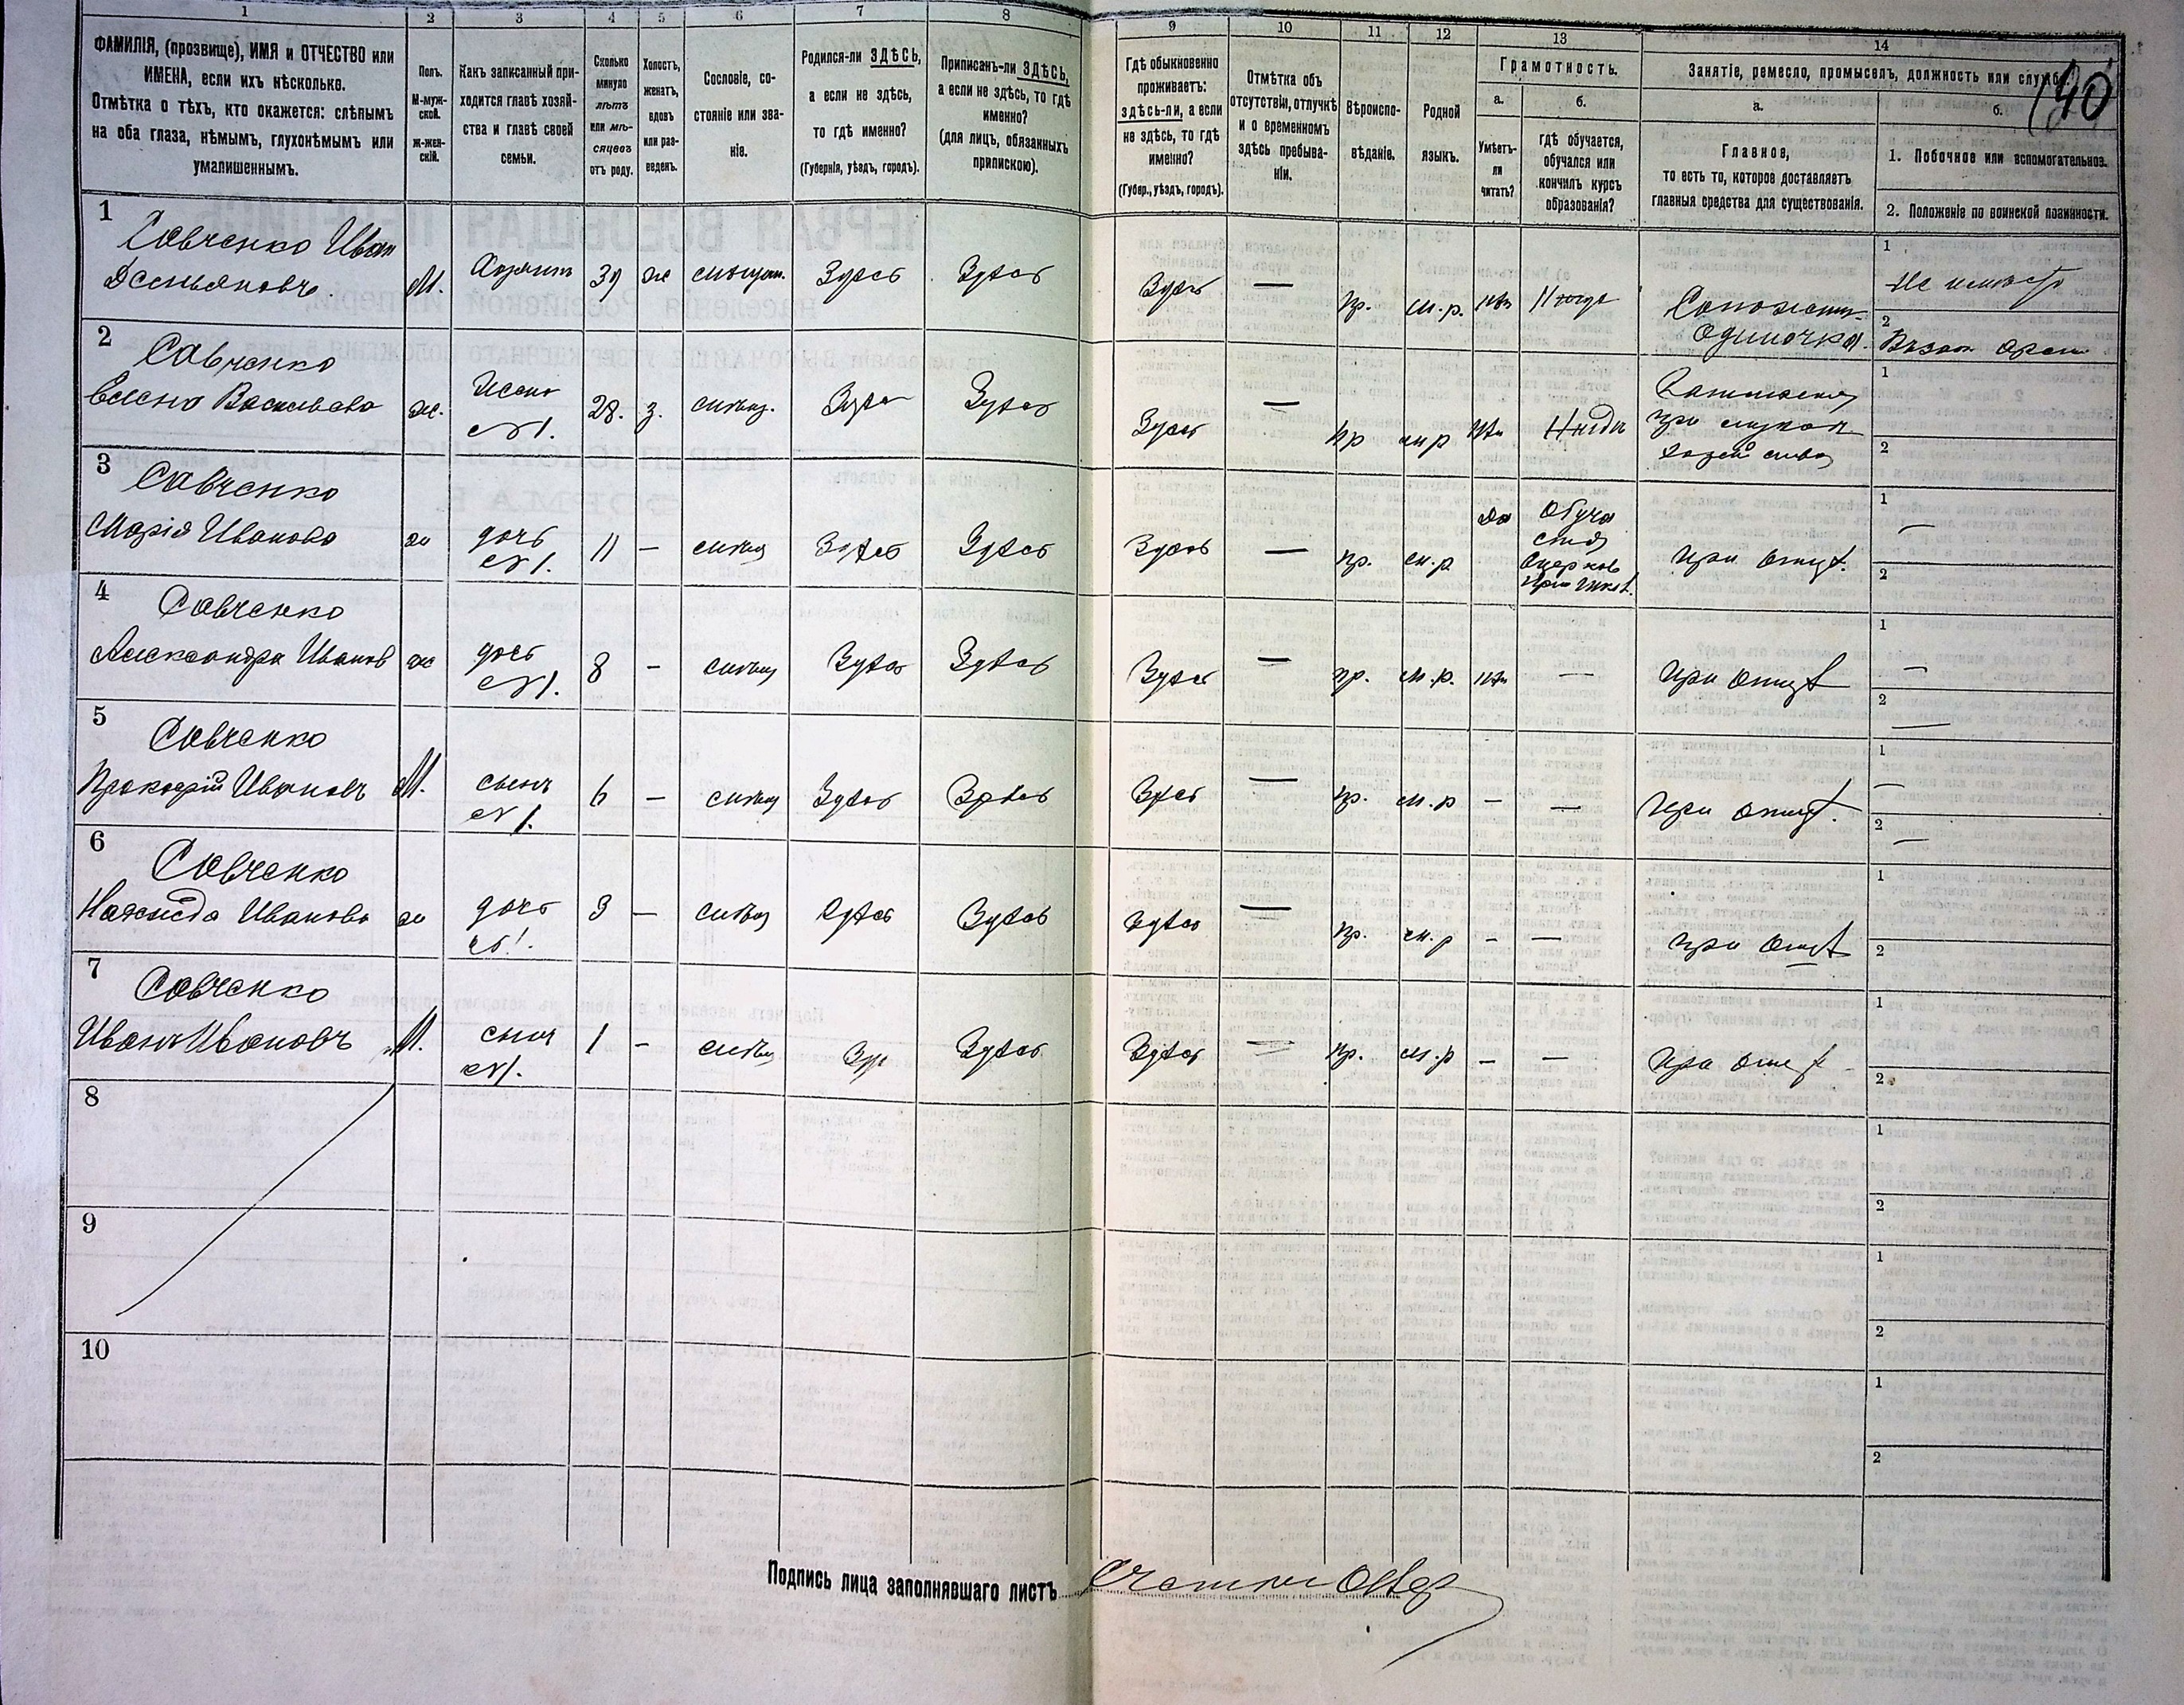 1 2 3 4 5 6 7 8 9 10 11 12 13 14
190
ФАМИЛІЯ, (прозвище), ИМЯ и ОТЧЕСТВО или
ИМЕНА, если ихъ нѣсколько.
Отмѣтка о тѣхъ, кто окажется: слѣпымъ
на оба глаза, нѣмымъ, глухонѣмымъ или
умалишеннымъ.
Полъ.
М-муж-
ской.
Ж-жен-
скій.
Какъ записанный при-
ходится главѣ хозяй-
ства и главѣ своей
семьи.
Сколько
минуло
лѣтъ
или мѣ-
сяцевъ
отъ роду.
Холостъ,
женатъ,
вдовъ
или раз-
веденъ.
Сословіе, со-
стояніе или зва-
ніе.
Родился-ли ЗДѢСЬ,
а если не здѣсь,
то гдѣ именно?
(Губернія, уѣздъ, городъ).
Приписанъ-ли ЗДѢСЬ,
а если не здѣсь, то гдѣ
именно?
(для лицъ, обязанныхъ
припискою).
Гдѣ обыкновенно
проживаетъ:
здѣсь-ли, а если
не здѣсь, то гдѣ
именно?
(Губер., уѣздъ, городъ).
Отмѣтка объ
отсутствіи, отлучкѣ
и о временномъ
здѣсь пребыва-
ніи.
Вѣроиспо-
вѣданіе.
Родной
языкъ.
Грамотность.
а.
Умѣетъ-
ли
читать?
б.
гдѣ обучается,
обучался или
кончилъ курсъ
образованія?
Занятіе, ремесло, промыселъ, должность или служба.
а.
Главное,
то есть то, которое доставляетъ
главныя средства для существованія.
б.
1. Побочное или вспомогательное.
2. Положеніе по воинской повинности.
1 Савченко Иван
Демьяновъ М. Хозяинъ 39 ж мѣщан. Здѣсь Здѣсь Здѣсь — пр. м.р. нѣт Нигде
Одиночка 1 Не имѣетъ
2
2 Савченко
Елена Васильева ж. Жена
№1. 28. з. мѣщ. Здѣсь Здѣсь Здѣсь — пр м р нѣт Нигдѣ
при 1
2
3 Савченко
Марія Иванова ж дочь
№1. 11 — мѣщ Здѣсь Здѣсь Здѣсь — пр. м.р. да Обуча
ется
при отцѣ. 1 —
2
4 Савченко
Александра Иванов ж дочь
№1. 8 — мѣщ Здѣсь Здѣсь Здѣсь — пр. м.р. нѣт — при отцѣ 1 —
2 —
5 Савченко
Прокофій Ивановъ М. сынъ
№1. 6 — мѣщ Здѣсь Здѣсь Здѣсь — пр. м.р — — при отцѣ. 1 —
2 —
6 Савченко
Надежда Иванова ж дочь
№1. 3 — мѣщ Здѣсь Здѣсь Здѣсь — пр. м.р — — при отцѣ 1
2
7 Савченко
Иванъ Ивановъ М. сынъ
№1. 1 — мѣщ Здѣсь Здѣсь Здѣсь — пр. м.р — — при отцѣ 1
2
8 1
2
9 1
2
10 1
2
Подпись лица заполнявшаго листъ